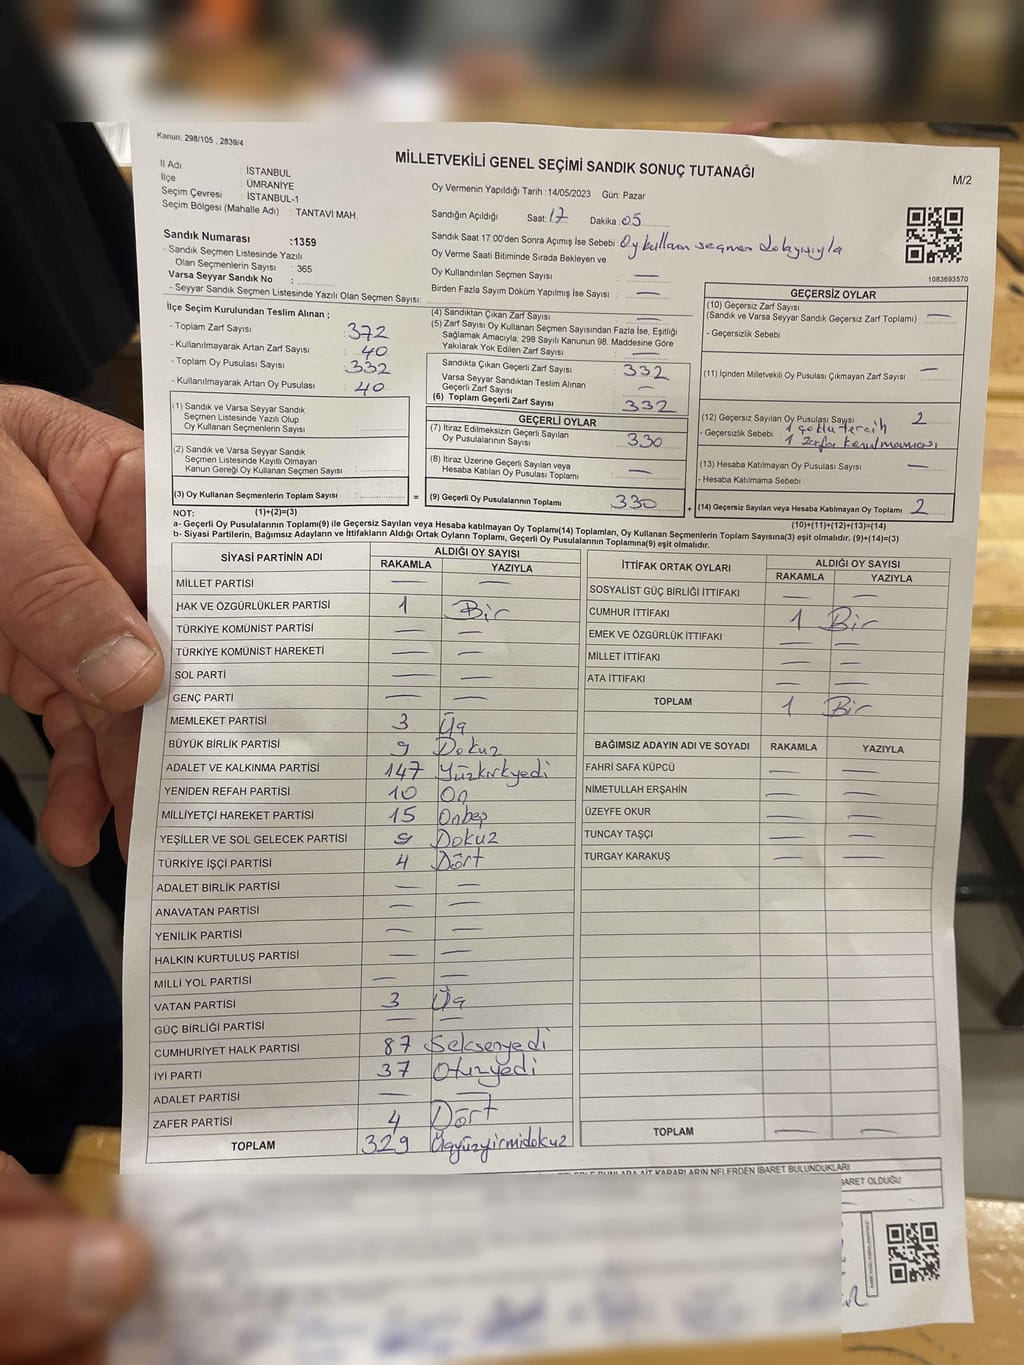 Kanun, 298/105 , 2839/4
MİLLETVEKİLİ GENEL SEÇİMİ SANDIK SONUÇ TUTANAĞI
M/2
İl Adı : İSTANBUL
İlçe : ÜMRANİYE
Seçim Çevresi : İSTANBUL-1
Seçim Bölgesi (Mahalle Adı) : TANTAVİ MAH.
Sandık Numarası :1359
- Sandık Seçmen Listesinde Yazılı
Olan Seçmenlerin Sayısı : 365
Varsa Seyyar Sandık No :
- Seyyar Sandık Seçmen Listesinde Yazılı Olan Seçmen Sayısı:
Oy Vermenin Yapıldığı Tarih :14/05/2023 Gün: Pazar
Sandığın Açıldığı Saat: 17 Dakika : 05
Sandık Saat 17:00'den Sonra Açımış İse Sebebi : Oy kullanan seçmen dolayısıyla
Oy Verme Saati Bitiminde Sırada Bekleyen ve
Oy Kullandırılan Seçmen Sayısı : —
Birden Fazla Sayım Döküm Yapılmış İse Sayısı : —
1083693570
İlçe Seçim Kurulundan Teslim Alınan ;
- Toplam Zarf Sayısı : 372
- Kullanılmayarak Artan Zarf Sayısı : 40
- Toplam Oy Pusulası Sayısı : 332
- Kullanılmayarak Artan Oy Pusulası : 40
(1) Sandık ve Varsa Seyyar Sandık
Seçmen Listesinde Yazılı Olup
Oy Kullanan Seçmenlerin Sayısı :
(2) Sandık ve Varsa Seyyar Sandık
Seçmen Listesinde Kayıtlı Olmayan
Kanun Gereği Oy Kullanan Seçmen Sayısı :
(3) Oy Kullanan Seçmenlerin Toplam Sayısı :
(1)+(2)=(3)
(4) Sandıktan Çıkan Zarf Sayısı : —
(5) Zarf Sayısı Oy Kullanan Seçmen Sayısından Fazla İse, Eşitliği
Sağlamak Amacıyla; 298 Sayılı Kanunun 98. Maddesine Göre
Yakılarak Yok Edilen Zarf Sayısı : —
Sandıkta Çıkan Geçerli Zarf Sayısı : 332
Varsa Seyyar Sandıktan Teslim Alınan
Geçerli Zarf Sayısı : —
(6) Toplam Geçerli Zarf Sayısı : 332
GEÇERLİ OYLAR
(7) İtiraz Edilmeksizin Geçerli Sayılan
Oy Pusulalarının Sayısı : 330
(8) İtiraz Üzerine Geçerli Sayılan veya
Hesaba Katılan Oy Pusulaları Toplamı : —
= (9) Geçerli Oy Pusulalarının Toplamı : 330 +
GEÇERSİZ OYLAR
(10) Geçersiz Zarf Sayısı
(Sandık ve Varsa Seyyar Sandık Geçersiz Zarf Toplamı) : —
- Geçersizlik Sebebi :
(11) İçinden Milletvekili Oy Pusulası Çıkmayan Zarf Sayısı : —
(12) Geçersiz Sayılan Oy Pusulası Sayısı : 2
- Geçersizlik Sebebi : 1 çoklu tercih
1 zarfa konulmaması
(13) Hesaba Katılmayan Oy Pusulası Sayısı : —
- Hesaba Katılmama Sebebi :
(14) Geçersiz Sayılan veya Hesaba Katılmayan Oy Toplamı : 2
(10)+(11)+(12)+(13)=(14)
NOT:
a- Geçerli Oy Pusulalarının Toplamı(9) ile Geçersiz Sayılan veya Hesaba katılmayan Oy Toplamı(14) Toplamları, Oy Kullanan Seçmenlerin Toplam Sayısına(3) eşit olmalıdır. (9)+(14)=(3)
b- Siyasi Partilerin, Bağımsız Adayların ve İttifakların Aldığı Ortak Oyların Toplamı, Geçerli Oy Pusulalarının Toplamına(9) eşit olmalıdır.
SİYASİ PARTİNİN ADI ALDIĞI OY SAYISI
RAKAMLA YAZIYLA
MİLLET PARTİSİ — —
HAK VE ÖZGÜRLÜKLER PARTİSİ 1 Bir
TÜRKİYE KOMÜNİST PARTİSİ — —
TÜRKİYE KOMÜNİST HAREKETİ — —
SOL PARTİ — —
GENÇ PARTİ — —
MEMLEKET PARTİSİ 3 Üç
BÜYÜK BİRLİK PARTİSİ 9 Dokuz
ADALET VE KALKINMA PARTİSİ 147 Yüzkırkyedi
YENİDEN REFAH PARTİSİ 10 On
MİLLİYETÇİ HAREKET PARTİSİ 15 Onbeş
YEŞİLLER VE SOL GELECEK PARTİSİ 9 Dokuz
TÜRKİYE İŞÇİ PARTİSİ 4 Dört
ADALET BİRLİK PARTİSİ — —
ANAVATAN PARTİSİ — —
YENİLİK PARTİSİ — —
HALKIN KURTULUŞ PARTİSİ — —
MİLLİ YOL PARTİSİ — —
VATAN PARTİSİ 3 Üç
GÜÇ BİRLİĞİ PARTİSİ — —
CUMHURİYET HALK PARTİSİ 87 Seksenyedi
İYİ PARTİ 37 Otuzyedi
ADALET PARTİSİ — —
ZAFER PARTİSİ 4 Dört
TOPLAM 329 Üçyüzyirmidokuz
İTTİFAK ORTAK OYLARI ALDIĞI OY SAYISI
RAKAMLA YAZIYLA
SOSYALİST GÜÇ BİRLİĞİ İTTİFAKI — —
CUMHUR İTTİFAKI 1 Bir
EMEK VE ÖZGÜRLÜK İTTİFAKI — —
MİLLET İTTİFAKI — —
ATA İTTİFAKI — —
TOPLAM 1 Bir
BAĞIMSIZ ADAYIN ADI VE SOYADI RAKAMLA YAZIYLA
FAHRİ SAFA KÜPCÜ — —
NİMETULLAH ERŞAHİN — —
ÜZEYFE OKUR — —
TUNCAY TAŞÇI — —
TURGAY KARAKUŞ — —
TOPLAM — —
KARARLARIN NELERDEN İBARET BULUNDUKLARI
İBARET OLDUĞU